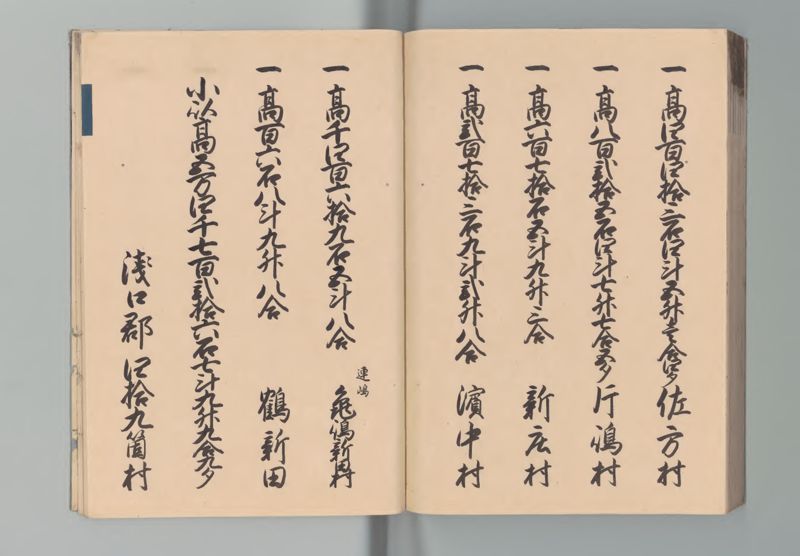 一 高四百四拾三石四斗五升壱合四夕 佐方村
一 高八百弐拾五石四斗七升七合五夕 片嶋村
一 高六百七拾石五斗九升三合 新庄村
一 高弐百七拾三石九斗弐升八合 濱中村
一 高千四百六拾九石五斗八合 連嶋 亀嶋新田村
一 高百六石八斗九升八合 鶴新田
小以高五万四千七百弐拾六石七斗九升九合九夕
浅口郡 四拾九箇村